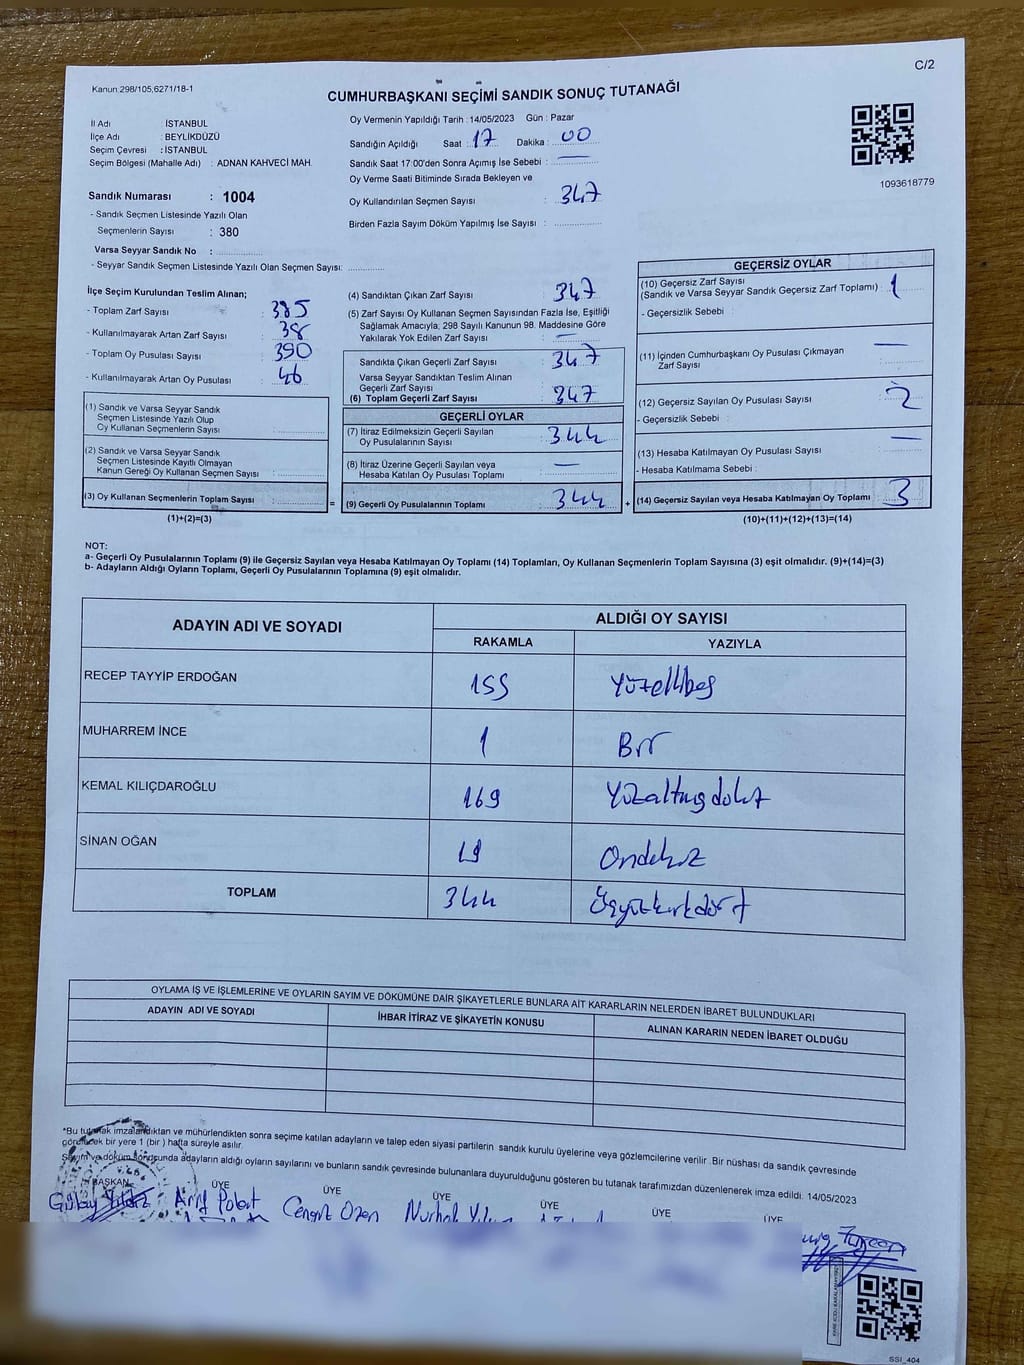 C/2
Kanun 298/105,6271/18-1
CUMHURBAŞKANI SEÇİMİ SANDIK SONUÇ TUTANAĞI
İl Adı : İSTANBUL
İlçe Adı : BEYLİKDÜZÜ
Seçim Çevresi : İSTANBUL
Seçim Bölgesi (Mahalle Adı) : ADNAN KAHVECİ MAH.
Sandık Numarası : 1004
- Sandık Seçmen Listesinde Yazılı Olan
Seçmenlerin Sayısı : 380
Varsa Seyyar Sandık No :
- Seyyar Sandık Seçmen Listesinde Yazılı Olan Seçmen Sayısı:
Oy Vermenin Yapıldığı Tarih : 14/05/2023 Gün : Pazar
Sandığın Açıldığı Saat : 17 Dakika : 00
Sandık Saat 17:00'den Sonra Açımış İse Sebebi : —
Oy Verme Saati Bitiminde Sırada Bekleyen ve
Oy Kullandırılan Seçmen Sayısı : 347
Birden Fazla Sayım Döküm Yapılmış İse Sayısı :
1093618779
İlçe Seçim Kurulundan Teslim Alınan;
- Toplam Zarf Sayısı : 385
- Kullanılmayarak Artan Zarf Sayısı : 38
- Toplam Oy Pusulası Sayısı : 390
- Kullanılmayarak Artan Oy Pusulası : 46
(1) Sandık ve Varsa Seyyar Sandık
Seçmen Listesinde Yazılı Olup
Oy Kullanan Seçmenlerin Sayısı :
(2) Sandık ve Varsa Seyyar Sandık
Seçmen Listesinde Kayıtlı Olmayan
Kanun Gereği Oy Kullanan Seçmen Sayısı :
(3) Oy Kullanan Seçmenlerin Toplam Sayısı :
(1)+(2)=(3)
(4) Sandıktan Çıkan Zarf Sayısı : 347
(5) Zarf Sayısı Oy Kullanan Seçmen Sayısından Fazla İse, Eşitliği
Sağlamak Amacıyla, 298 Sayılı Kanunun 98. Maddesine Göre
Yakılarak Yok Edilen Zarf Sayısı : —
Sandıkta Çıkan Geçerli Zarf Sayısı : 347
Varsa Seyyar Sandıktan Teslim Alınan
Geçerli Zarf Sayısı
(6) Toplam Geçerli Zarf Sayısı : 347
GEÇERLİ OYLAR
(7) İtiraz Edilmeksizin Geçerli Sayılan
Oy Pusulalarının Sayısı : 344
(8) İtiraz Üzerine Geçerli Sayılan veya
Hesaba Katılan Oy Pusulası Toplamı : —
= (9) Geçerli Oy Pusulalarının Toplamı : 344 +
GEÇERSİZ OYLAR
(10) Geçersiz Zarf Sayısı
(Sandık ve Varsa Seyyar Sandık Geçersiz Zarf Toplamı) : 1
- Geçersizlik Sebebi :
(11) İçinden Cumhurbaşkanı Oy Pusulası Çıkmayan —
Zarf Sayısı :
(12) Geçersiz Sayılan Oy Pusulası Sayısı : 2
- Geçersizlik Sebebi :
(13) Hesaba Katılmayan Oy Pusulası Sayısı : —
- Hesaba Katılmama Sebebi :
(14) Geçersiz Sayılan veya Hesaba Katılmayan Oy Toplamı : 3
(10)+(11)+(12)+(13)=(14)
NOT:
a- Geçerli Oy Pusulalarının Toplamı (9) ile Geçersiz Sayılan veya Hesaba Katılmayan Oy Toplamı (14) Toplamları, Oy Kullanan Seçmenlerin Toplam Sayısına (3) eşit olmalıdır. (9)+(14)=(3)
b- Adayların Aldığı Oyların Toplamı, Geçerli Oy Pusulalarının Toplamına (9) eşit olmalıdır.
ADAYIN ADI VE SOYADI
ALDIĞI OY SAYISI
RAKAMLA YAZIYLA
RECEP TAYYİP ERDOĞAN 155 Yüzellibeş
MUHARREM İNCE 1 Bir
KEMAL KILIÇDAROĞLU 169 Yüzaltmışdokuz
SİNAN OĞAN 19 Ondokuz
TOPLAM 344 Üçyüzkırkdört
OYLAMA İŞ VE İŞLEMLERİNE VE OYLARIN SAYIM VE DÖKÜMÜNE DAİR ŞİKAYETLERLE BUNLARA AİT KARARLARIN NELERDEN İBARET BULUNDUKLARI
ADAYIN ADI VE SOYADI İHBAR İTİRAZ VE ŞİKAYETİN KONUSU ALINAN KARARIN NEDEN İBARET OLDUĞU
*Bu tutanak imzalandıktan ve mühürlendikten sonra seçime katılan adayların ve talep eden siyasi partilerin sandık kurulu üyelerine veya gözlemcilerine verilir. Bir nüshası da sandık çevresinde
görülecek bir yere 1 (bir) hafta süreyle asılır.
Sayım ve döküm sonucunda adayların aldığı oyların sayılarını ve bunların sandık çevresinde bulunanlara duyurulduğunu gösteren bu tutanak tarafımızdan düzenlenerek imza edildi. 14/05/2023
BAŞKAN ÜYE ÜYE ÜYE ÜYE ÜYE ÜYE
Gülay Yıldız Arif Polat Cengiz Ozen Nurhak
SSI_404